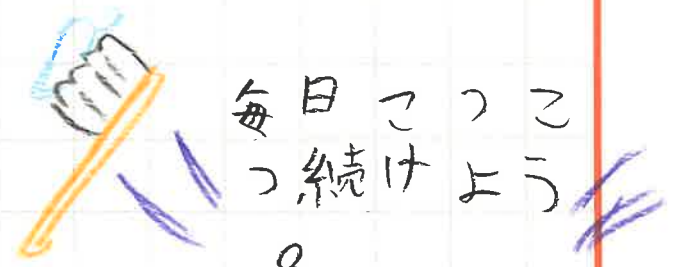 毎日こつこ
つ続けよう
。